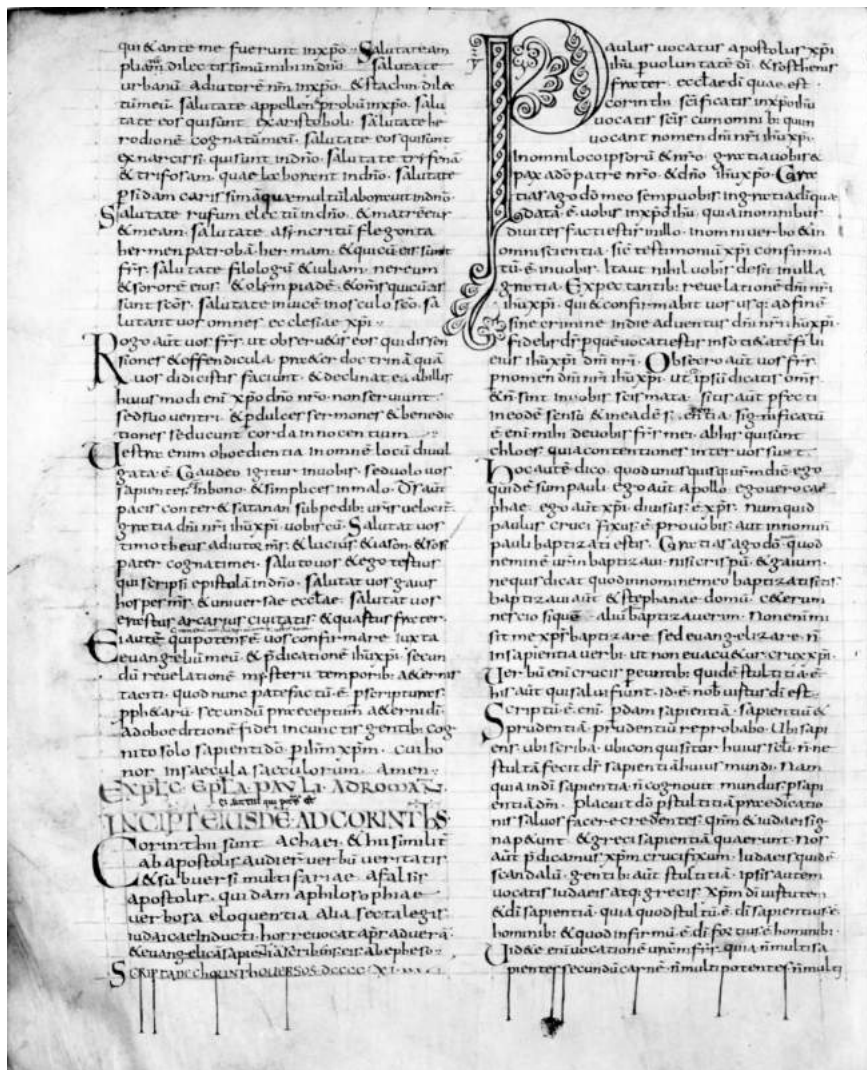 qui & ante me fuerunt inxp̄o. Salutate am
pliatū dilectissimū mihi indn̄o. salutate
urbanū adiutorē nr̄m inxp̄o. & stachin dilec
tū meū. salutate appellen probū inxp̄o. salu
tate eos qui sunt exaristoboli. salutate he
rodionē cognatū meū. salutate eos qui sunt
exnarcissi. qui sunt indn̄o. salutate trifenā
& trifosam. quae laborent indn̄o. salutate
p̄sidam carissimā quae multū laboravit indn̄o.
Salutate rufum electū indn̄o. & matrē eius
& meam. salutate asyncritū flegonta
hermen patrobā. hermam. & qui cū eis sunt
fr̄s. salutate filologū & iuliam. nereum
& sororē eius. & olempiadē. & om̄s qui cū eis
sunt sc̄os. salutate invicē inosculo sc̄o. sa
lutant vos omnes ecclesiae xp̄i.
Rogo aūt vos fr̄s. ut observ&is eos qui dissen
siones & offendicula praeter doctrinā quā
vos didicistis faciunt. & declinate abillis
huius modi enī xp̄o dn̄o nr̄o. non serviunt
sed suo ventri. & p̄ dulces sermones & benedic
tiones seducunt corda innocentium.
Uestra enim oboedientia inomnē locū divul
gata ē. Gaudeo igitur invobis. sed volo vos
sapientes inbono. & simplices inmalo. Ds̄ aūt
pacis conter& satanan sub pedib: vr̄is velocit̄.
gratia dn̄i nr̄i ihū xp̄i vobiscū. Salutat vos
timotheus adiutor ms̄. & lucius & iason. & sosi
pater cognati mei. saluto vos & ego tertius
qui scripsi epistolā indn̄o. salutat vos gaius
hospes ms̄. & universae eccl̄ae. salutat vos
erastus arcarius civitatis & quartus frater.
Ei autē qui potens ē vos confirmare iuxta
evangeliū meū. & p̄dicationē ihū xp̄i. secun
dū revelationē mysterii temporib: aeternis
taciti. quod nunc patefactū ē. p̄ scripturas
pph&arū. secundū praeceptum aeterni dī
adoboeditionē fidei incunctis gentib: cog
nito solo sapienti dō. p̄ ihm̄ xpm̄. cui ho
nor insaecula saeculorum. amen.
EXPLC. EPLA. PAVLI. ADROMAN.
INCIPIT EIUSDĒ AD CORINTHS
Corinthii sunt achaei. & hii similit̄
ab apostolis audier̄ verbū veritatis
& subversi multifariae. a falsis
apostolis. quidam aphilosophiae
verbosa eloquentia alia secta legis
iudaicae inducti. hos revocat ap̄s ad verā
& evangelicā sapientiā scribens eis ab epheso.
Paulus vocatus apostolus xp̄i
ihū p̄ voluntatē dī. & sosthenis
frater. eccl̄ae dī quae est
corinthi sc̄ificatis inxp̄o ihū
vocatis sc̄is cum omnib: qui in
vocant nomen dn̄i nr̄i ihū xp̄i.
Inomni loco ipsorū & nr̄o. gratia vobis &
pax adō patre nr̄o. & dn̄o ihū xp̄o. Gra
tias ago dō meo semp̄ vobis ingratia dī quae
data ē vobis inxp̄o ihū. quia inomnibus
divites facti estis inillo. inomni verbo & in
omni scientia. sic̄ testimoniū xp̄i confirma
tū ē invobis. Ita ut nihil vobis desit inulla
gratia. Expectantib: revelationē dn̄i nr̄i
ihū xp̄i. qui & confirmabit vos usq: adfinē
sine crimine indie adventus dn̄i nr̄i ihū xp̄i.
fidelis ds̄ p̄ quē vocati estis insocietatē filii
eius ihū xp̄i dn̄i nr̄i. Obsecro aūt vos fr̄s.
p̄ nomen dn̄i nr̄i ihū xp̄i. ut id ipsū dicatis om̄s
& n̄ sint invobis scismata. sitis aūt p̄fecti
ineodē sensu & ineadē sententia. significatū
ē enī mihi devobis fr̄s mei. abhis qui sunt
chloes. quia contentiones inter vos sunt.
Hoc autē dico. quod unus quisq: vr̄m dic̄. ego
quidē sum pauli. ego aūt apollo. ego vero cae
phae. ego aūt xp̄i. divisus ē xp̄s. Numquid
paulus crucifixus ē pro vobis. aut innomin̄
pauli baptizati estis. Gratias ago dō. quod
neminē vr̄m baptizavi. nisi crispū. & gaium.
nequis dicat quod innomine meo baptizati sitis.
baptizavi aūt & stephanae domū. c&erum
nescio siquē aliū baptizaverim. Non enī mi
sit me xp̄s baptizare. sed evangelizare. n̄
insapientia verbi. ut non evacu&ur crux xp̄i.
Verbū enī crucis p̄euntib: quidē stultitia ē.
his aūt qui salvi fiunt. id ē nob̄ virtus dī est.
Scriptū ē enī. p̄dam sapientiā sapientiū &
prudentiā prudentiū reprobabo. Ubi sapi
ens. ubi scriba. ubi conquisitor huius scl̄i. n̄ne
stultā fecit ds̄ sapientiā huius mundi. Nam
quia indī sapientia n̄ cognovit mundus p̄ sapi
entiā dm̄. placuit dō p̄ stultitiā praedicatio
nis salvos facere credentes. qnm̄ & iudaei sig
na p&unt. & greci sapientiā quaerunt. Nos
aūt p̄dicamus xpm̄ crucifixum. Iudaeis quidē
scandalū. gentib: aūt stultitiā. ipsis autem
vocatis iudaeis atq: grecis xpm̄ dī virtutem
& dī sapientiā. quia quod stultū ē dī sapientius ē
hominib: & quod infirmū ē dī fortius ē hominib:
Uid&e enī vocationē vr̄am fr̄s. quia n̄ multi sa
pientes secundū carnē. n̄ multi potentes. n̄ multi